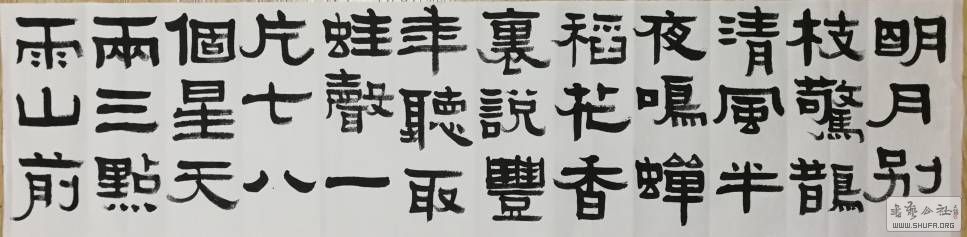 明月别
枝驚鵲
清風半
夜鳴蟬
稻花香
裏說豐
年聽取
蛙聲一
片七八
個星天
兩三點
雨山前
書藝公社
WWW.SHUFA.ORG